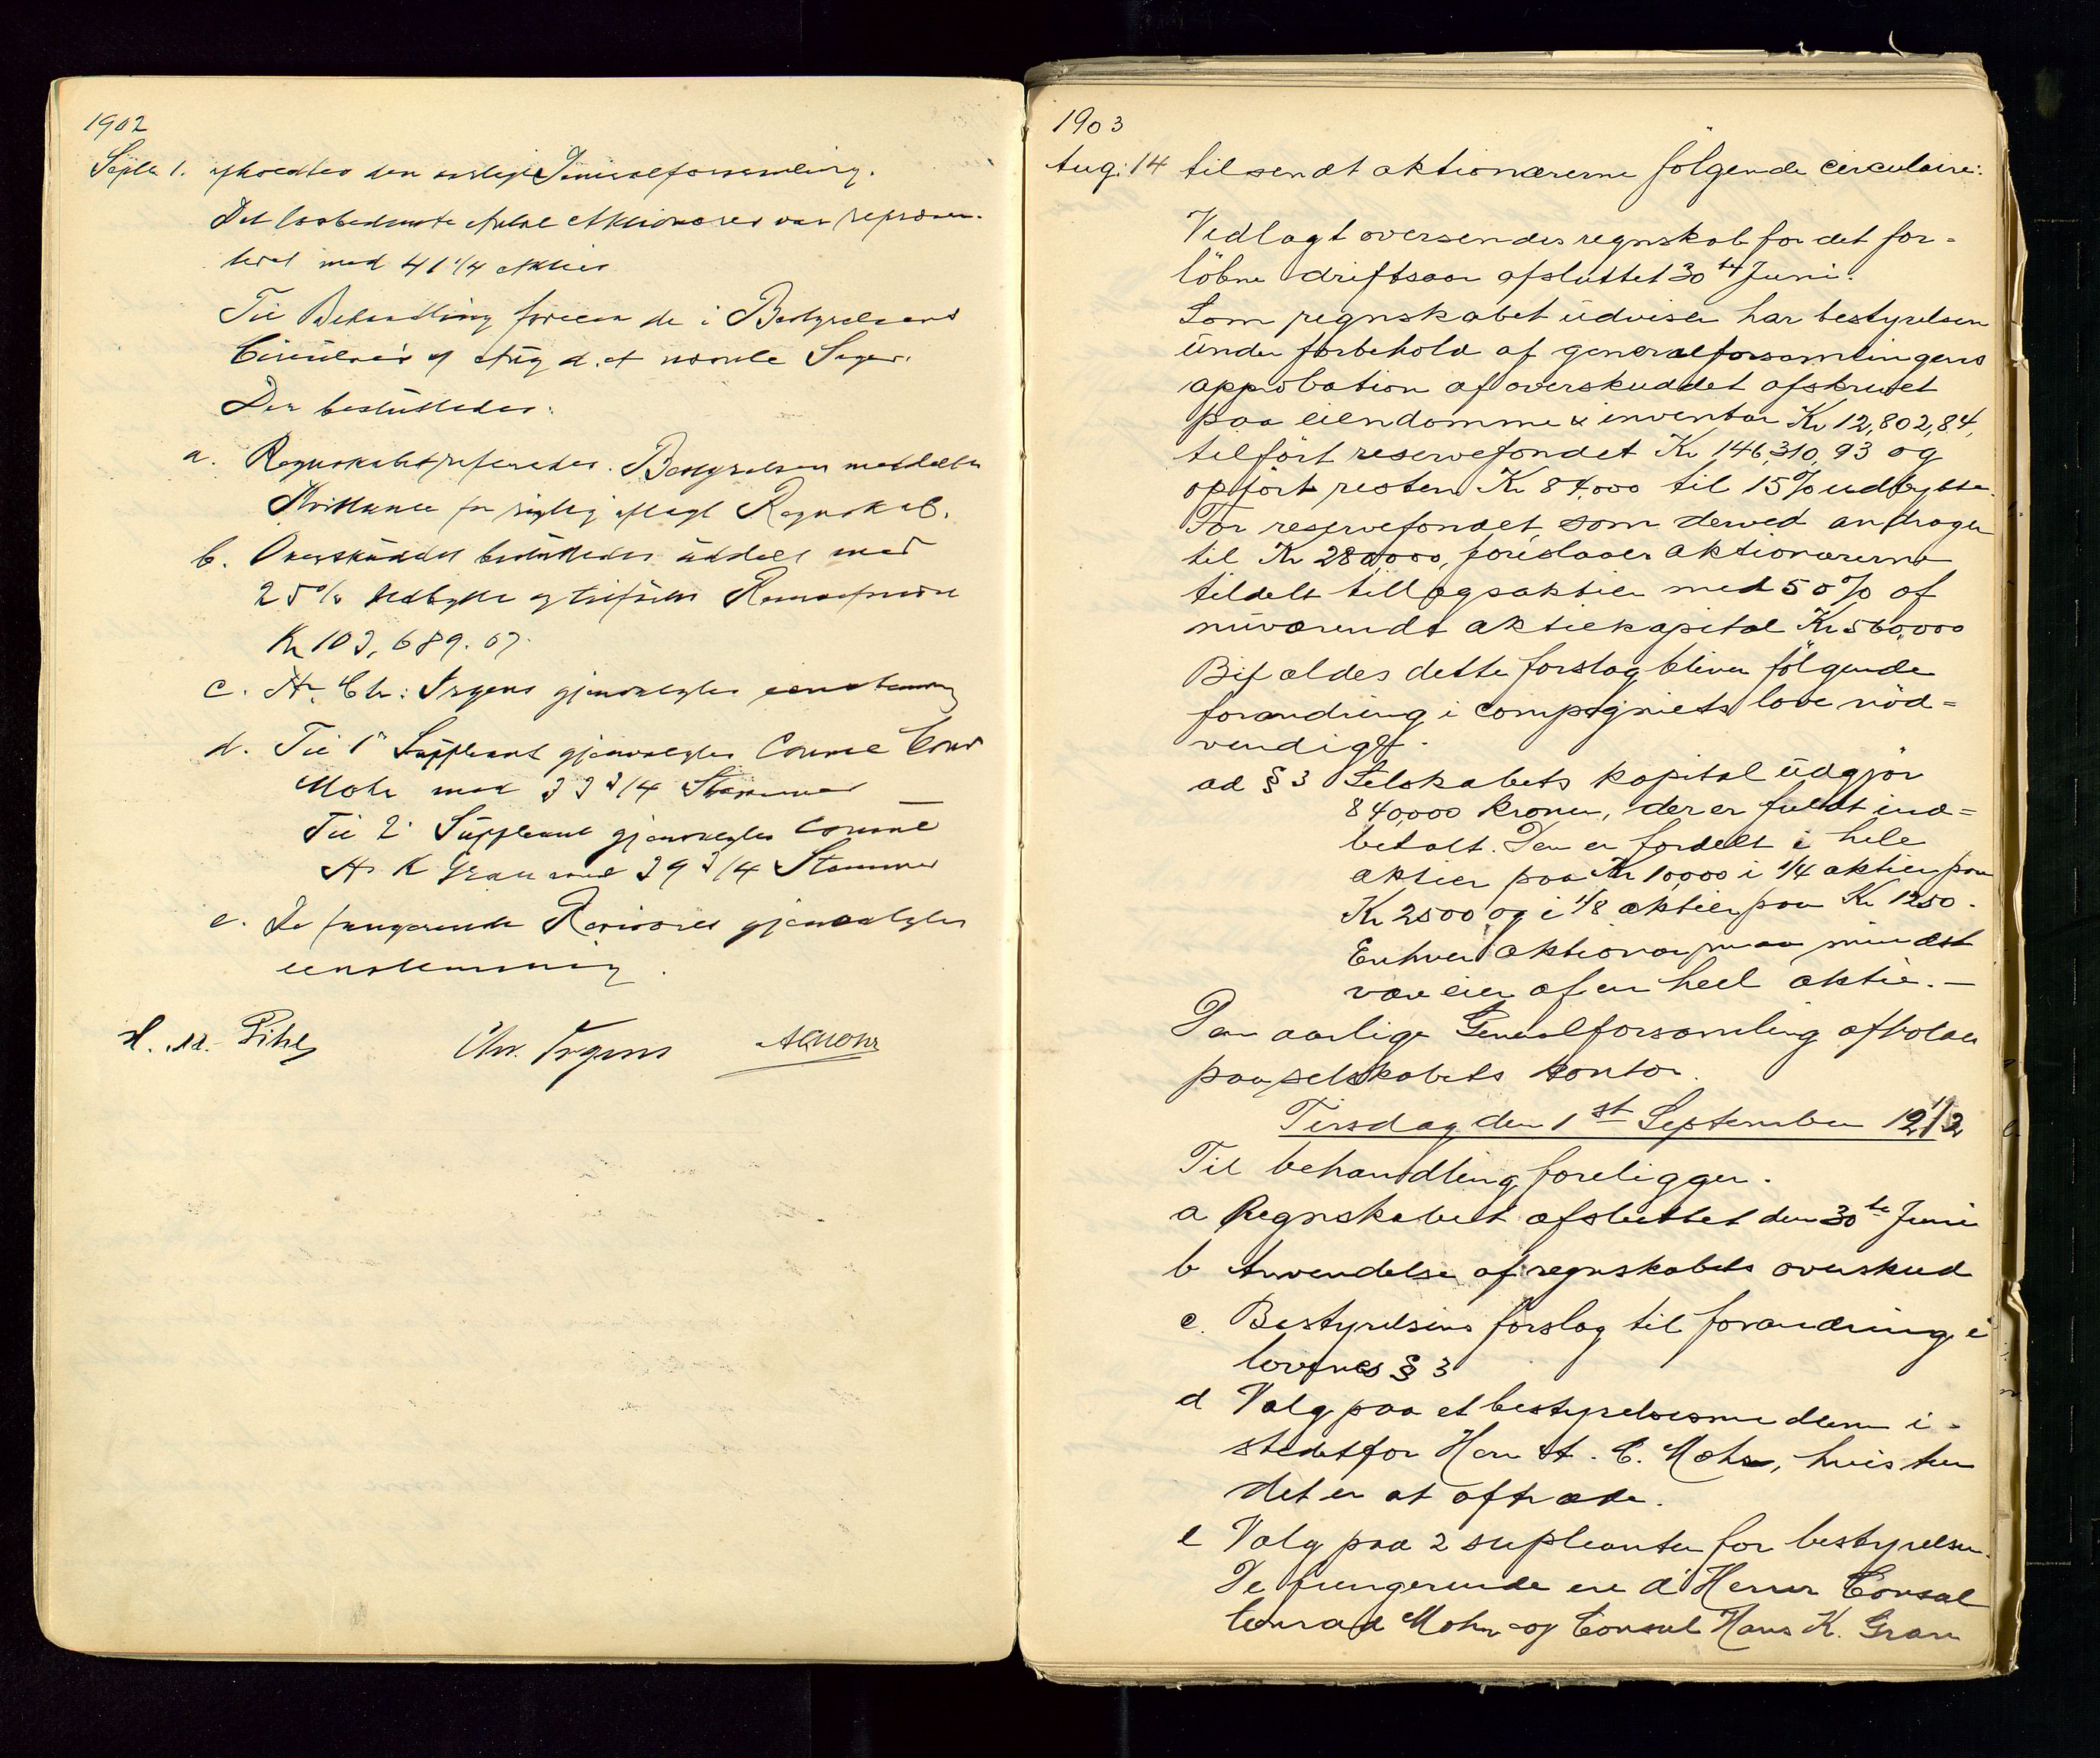 1902
Septbr 1. afholdtes den aarlige Generalforsamling.
Det lovbestemte Antal Aktionærer var repræsen-
teret med 41 1/4 Aktier
Til Behandling forelaa de i Bestyrelsens
Circulære af Aug d. A nævnte Sager.
Der besluttedes:
a. Regnskabet refereredes. Bestyrelsen meddeltes
Kvittance for rigtig aflagt Regnskab.
b. Overskuddet besluttedes uddelt med
25% Udbytte og tilførtes Reservefondet
Kr 103,689.07.
c. Hr. Chr: Irgens gjenvalgtes eenstemmig
d. Til 1ste Suppleant gjenvalgtes Consul Conr
Mohr med 33 3/4 Stemmer
Til 2. Suppleant gjenvalgtes Consul
H. K Gran med 39 3/4 Stemmer
e. De fungerende Revisorer gjenvalgtes
eenstemmig.
H. M. Pihl Chr. Irgens A C Mohr
1903
Aug: 14 tilsendt aktionærerne følgende circulaire:
Vedlagt oversendes regnskab for det for=
løbne driftsaar afsluttet 30te Juni.
Som regnskabet udviser har bestyrelsen
under forbehold af generalforsamlingens
approbation af overskuddet afskrevet
paa eiendomme & inventar Kr 12,802,84,
tilført reservefondet Kr 146,310,93 og
opført resten Kr 84,000 til 15% udbytte.
For reservefondet, som derved andrager
til Kr 280,000, foreslaaes aktionærerne
tildelt tillægsaktier med 50% af
nuværende aktiekapital Kr 560,000
Bifaldes dette forslag bliver følgende
forandring i compagniets love nød=
vendigt.
ad § 3 Selskabets kapital udgjør
840,000 kroner, der er fuldt ind=
betalt. Den er fordelt i hele
aktier paa Kr 10,000 i 1/4 aktier paa
Kr 2500 og i 1/8 aktier paa Kr 1250.
Enhver aktionær maa mindst
være eier af en heel aktie. —
Den aarlige Generalforsamling afholdes
paa selskabets kontor.
Tirsdag den 1st September 12 1/2
Til behandling foreligger.
a Regnskabet afsluttet den 30te Juni
b Anvendelse af regnskabets overskud
c. Bestyrelsens forslag til forandring i
lovenes § 3
d Valg paa et bestyrelsesmedlem i-
stedetfor Herr A. C. Mohr, hvis tur
det er at aftræde.
e Valg paa 2 supleanter for bestyrelsen.
De fungerende ere d'Herrer Consul
Conrad Mohr og Consul Hans K. Gran